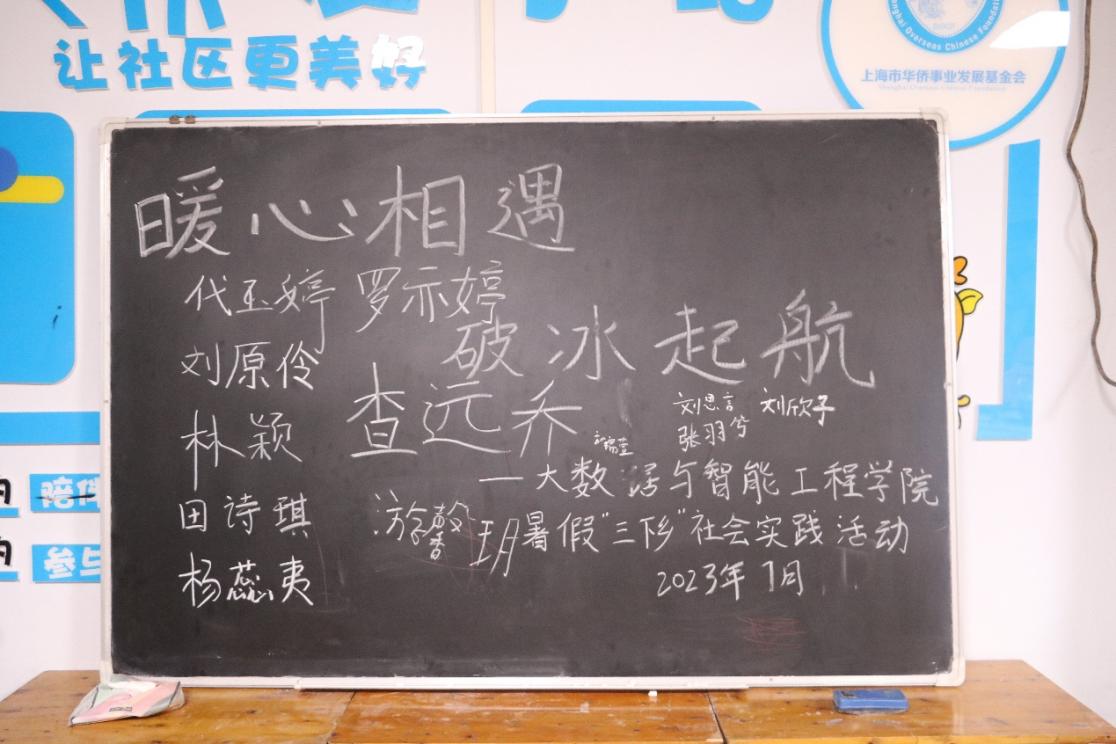 让社区更美好
Shanghai Overseas Chinese Foundation
上海市华侨事业发展基金会
Shanghai Overseas Chinese Foundation
暖心相遇
代玉婷 罗示婷
破冰起航
刘原伶
查远乔
刘思言 刘欣子
张羽兮
林颖
一大数 与智能工程学院
田诗琪
游馨玥
暑假"三下乡"社会实践活动
杨蕊夷
2023年7月
陪伴
参与